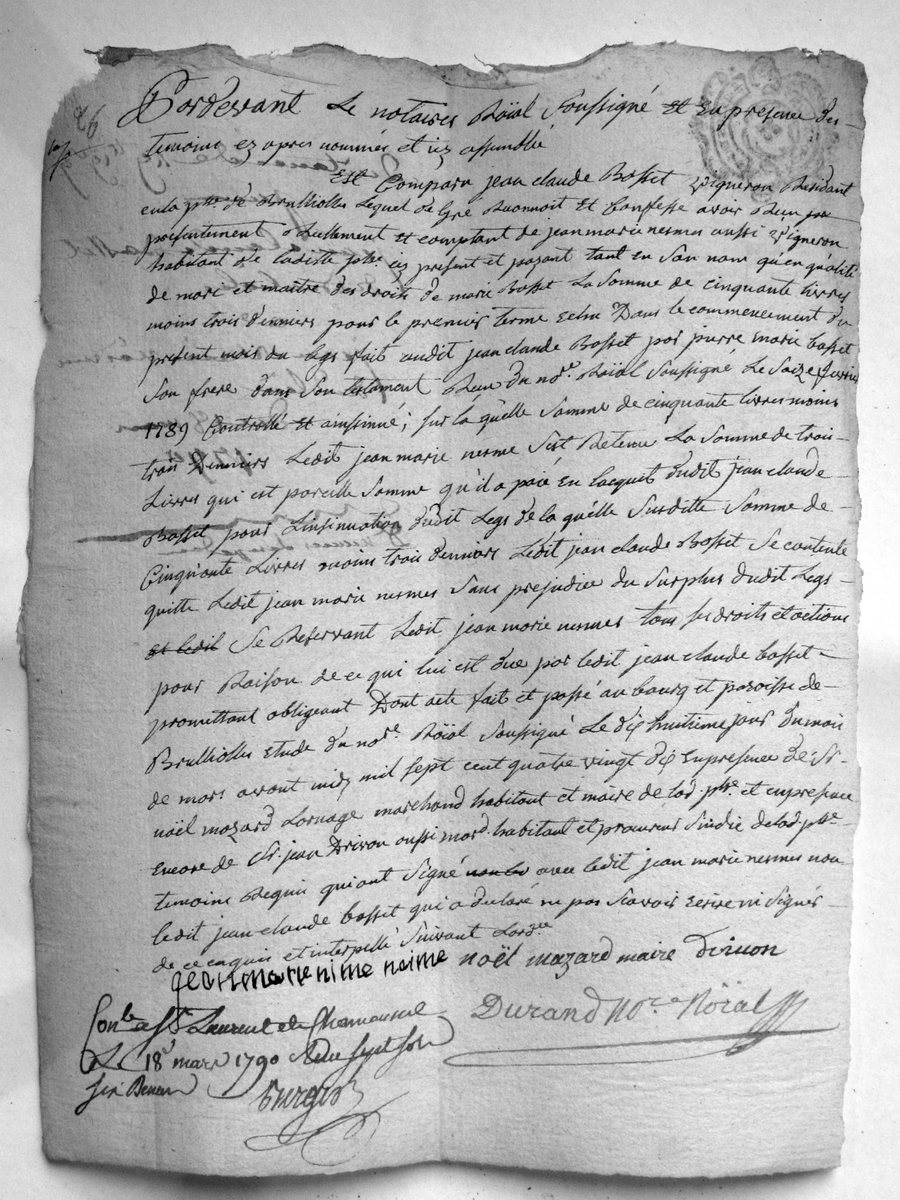 Pardevant Le notaires Roïal Soussigné Et En presence des
temoins cy apres nommés et icy assemblé
Est Comparu jean claude Bosset vigneron Residant
en la psse de Brulliolles Lequel de Gré Reconnoit Et Confesse avoir Reçu
presentement Reellement et comptant de jean marie nesmes aussi vigneron
habitant de laditte psse icy present et payant tant en Son nom qu'en qualité
de mari et maitre des droits de marie Bosset La Somme de cinquante livres
moins trois deniers pour le premier terme echu Dans le commencement du
present mois du legs fait audit jean claude Bosset par pierre marie Bosset
Son frere dans Son testament Reçu du nore Roïal Soussigné Le Saize
1789 Controllé Et ainsinué; Sur la quelle Somme de cinquante livres moins
trois Denniers Ledit jean marie nesme S'est Retenu La Somme de trois
Livres qui est pareille Somme qu'il a paié En l'acquit dudit jean claude
Bosset pour L'insinuation dudit Legs de la quelle Surditte Somme de
Cinquante Livres moins trois denniers Ledit jean claude Bosset Se contente
quitte Ledit jean marie nesmes Sans prejudice du Surplus dudit Legs
et ledit Se Reservant Ledit jean marie nesmes tous ses droits et actions
pour Raison de ce qui lui est due par ledit jean claude bosset
promettant obligeant Dont acte fait et passé au bourg et paroisse de
Brulliolles Etude du nore Roïal Soussigné Le dix huitième jour du mois
de mars avant midy mil sept cent quatre vingt dix En presence de Sr
noël mazard Lornage marchand habitant et maire de lad. psse et en presence
Encore de Sr. jean Drivon aussi mard. habitant et procureur Sindic de lad psse
temoins Requis qui ont signé avec ledit jean marie nesmes non
ledit jean claude bosset qui a declaré ne pas Scavoir Ecrire ni Signer
de ce enquis et interpellé Suivant Lordce
jean marie nime neime noël mazard maire drivon
Conle a St Laurent de Chamousset Durand Nore Roïal
Le 18 mars 1790 Reçu sept sols
six Deniers